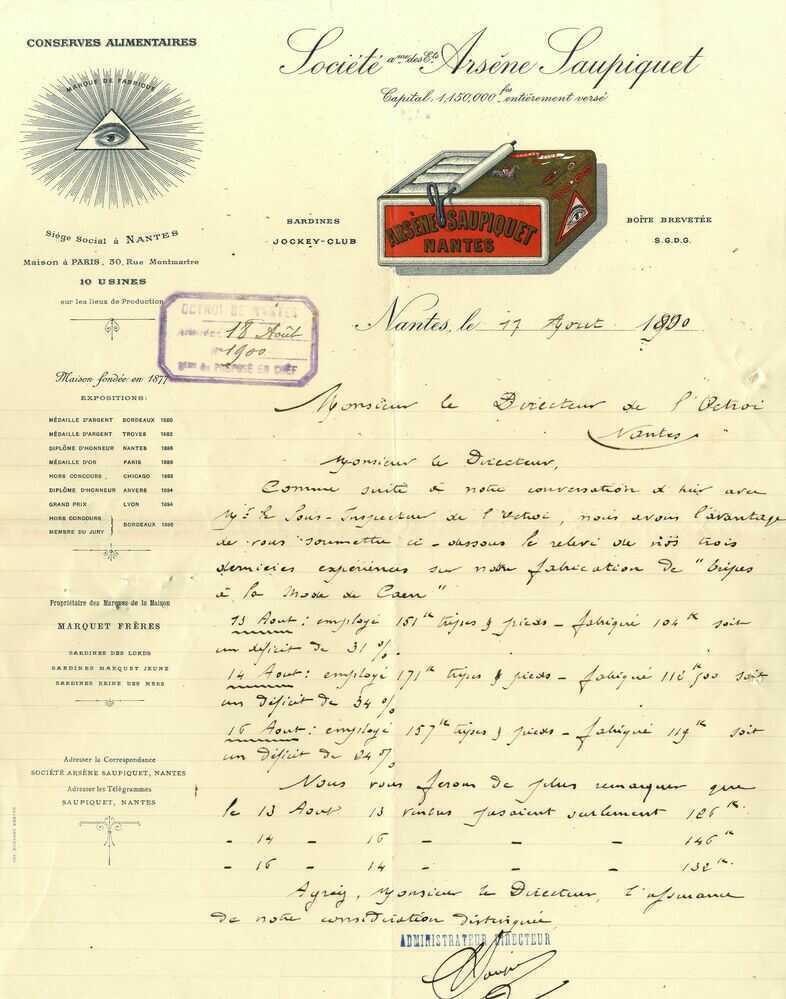 CONSERVES ALIMENTAIRES
MARQUE DE FABRIQUE
Siège Social à NANTES
Maison à PARIS, 30, Rue Montmartre
10 USINES
sur les lieux de Production
Société ame des Ets Arsène Saupiquet
Capital, 1,150,000 frs entièrement versé
SARDINES
JOCKEY-CLUB
ARSÈNE SAUPIQUET
NANTES
BOÎTE BREVETÉE
S.G.D.G.
OCTROI DE NANTES
18 Août
1900
PRÉPOSÉ EN CHEF
Nantes, le 17 Aout 1900
Maison fondée en 1877
EXPOSITIONS:
MÉDAILLE D'ARGENT BORDEAUX 1880
MÉDAILLE D'ARGENT TROYES 1882
DIPLÔME D'HONNEUR NANTES 1886
MÉDAILLE D'OR PARIS 1889
HORS CONCOURS CHICAGO 1893
DIPLÔME D'HONNEUR ANVERS 1894
GRAND PRIX LYON 1894
HORS CONCOURS
MEMBRE DU JURY
BORDEAUX 1895
Propriétaire des Marques de la Maison
MARQUET FRÈRES
SARDINES DES LORDS
SARDINES MARQUET JEUNE
SARDINES REINE DES MERS
Adresser la Correspondance
SOCIÉTÉ ARSÈNE SAUPIQUET, NANTES
Adresser les Télégrammes
SAUPIQUET, NANTES
Monsieur le Directeur de l'Octroi
Nantes
Monsieur le Directeur,
Comme suite à notre conversation d'hier avec
Mr le Sous-Inspecteur de l'Octroi, nous avons l'avantage
de vous soumettre ci-dessous le relevé de nos trois
dernières expériences sur notre fabrication de "tripes
à la Mode de Caen"
13 Aout: employé 151 k tripes & pieds - fabriqué 104 k soit
un déficit de 31 %.
14 Aout: employé 171 k tripes & pieds - fabriqué 112 k 500 soit
un déficit de 34 %
16 Aout: employé 157 k tripes & pieds - fabriqué 119 k soit
un déficit de 24 %
Nous vous ferons de plus remarquer que
le 13 Aout 13 ventres pesaient seulement 126 k.
- 14 - 16 - - - 146 k.
- 16 - 14 - - - 132 k.
Agréez, Monsieur le Directeur, l'assurance
de notre considération distinguée
ADMINISTRATEUR DIRECTEUR